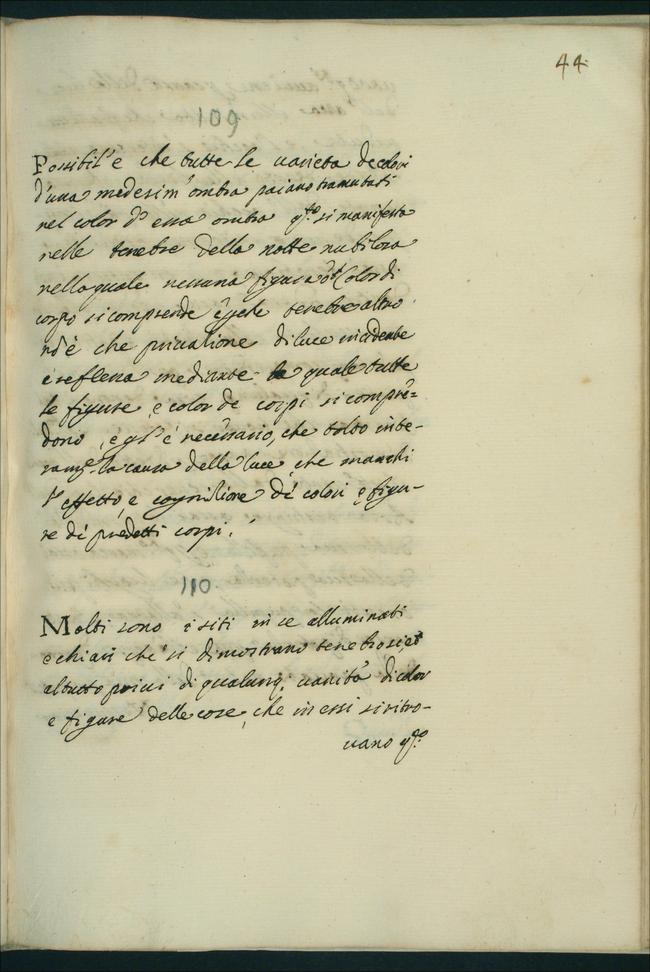 44
109
Possibil'è che tutte le varietà de colori
d'una medesim'ombra paiano tramutati
nel color d'essa ombra q.to si manifesta
nelle tenebre della notte nubilosa
nella quale nessuna figura ò Color di
corpo si comprende e tenebre altro
nõ è che privatione di luce incidente
e reflessa mediante la quale tutte
le figure, e color de corpi si comprẽ=
dono, e è necessario, che tolto inte-
ram.te la causa della luce, che manchi
l'effetto, e cognitione dè colori e figu-
re dè predetti corpi.
110
Molti sono i siti in se alluminati
e chiari che si dimostrano tenebrosi, et
al tutto privi di qualunq; varietà di color
e figure delle cose, che in essi si ritro-
vano q.to